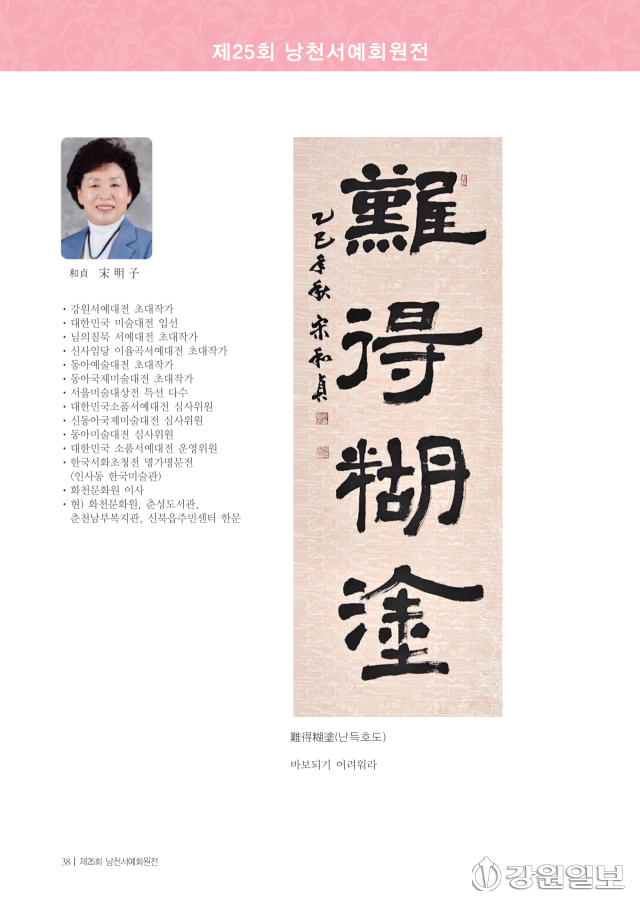 제25회 낭천서예회원전
和貞 宋明子
· 강원서예대전 초대작가
· 대한민국 미술대전 입선
· 님의침묵 서예대전 초대작가
· 신사임당 이율곡서예대전 초대작가
· 동아예술대전 초대작가
· 동아국제미술대전 초대작가
· 서울미술대상전 특선 다수
· 대한민국소품서예대전 심사위원
· 신동아국제미술대전 심사위원
· 동아미술대전 심사위원
· 대한민국 소품서예대전 운영위원
· 한국서화초청전 명가명문전
(인사동 한국미술관)
· 화천문화원 이사
· 현) 화천문화원, 춘성도서관,
춘천남부복지관, 신북읍주민센터 한문
難得糊塗
乙巳年秋 宋和貞
難得糊塗(난득호도)
바보되기 어려워라
38 | 제25회 낭천서예회원전
강원일보